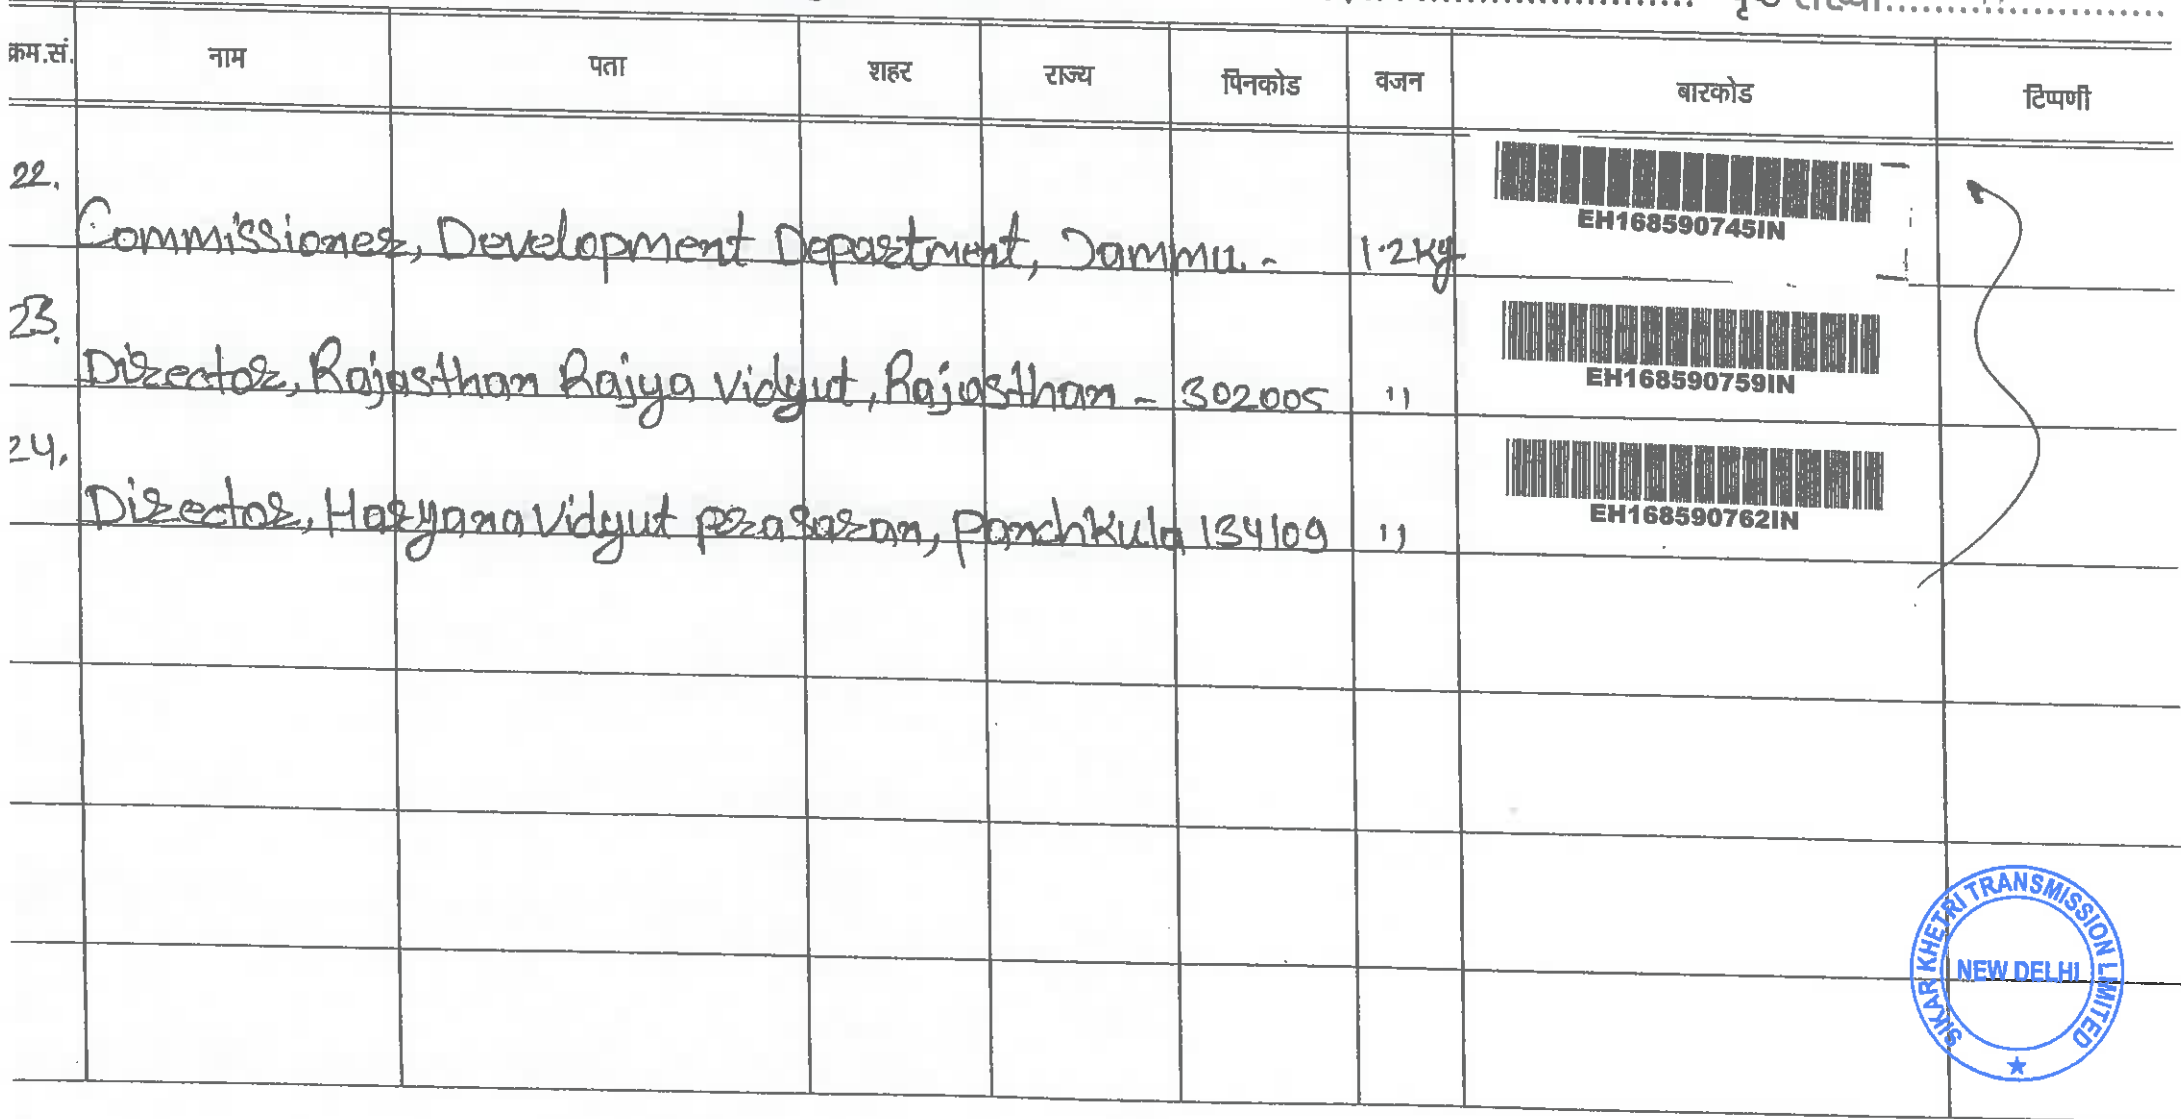 पृष्ठ संख्या
क्रम.सं. नाम पता शहर राज्य पिनकोड वजन बारकोड टिप्पणी
22. Commissioner, Development Department, Jammu - 1.2Kg EH168590745IN
23. Director, Rajasthan Rajya vidyut, Rajasthan - 302005 " EH168590759IN
24. Director, Haryana Vidyut prasaran, panchkula 134109 " EH168590762IN
SIKAR KHETRI TRANSMISSION LIMITED
NEW DELHI